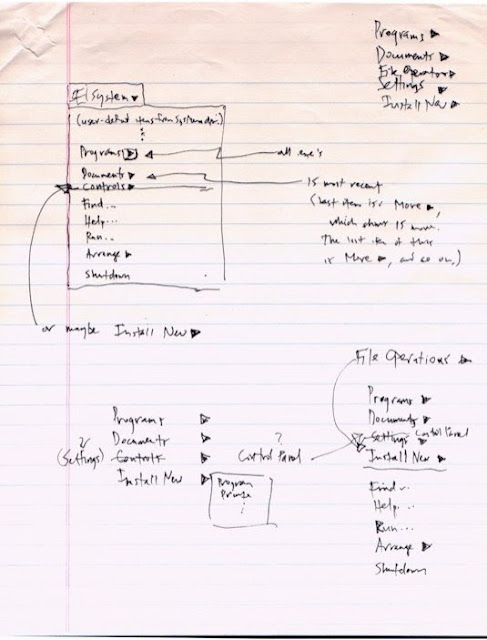 Programs ▶
Documents ▶
File Operations ▶
Settings ▶
Install New ▶
System ▼
(user-defined items from system dir.)
Programs ▶
all exe's
Documents ▶
15 most recent
Controls ▶
(last item is More ▶,
which shows 15 more.
The last item of these
is More ▶, and so on.)
Find...
Help...
Run...
Arrange ▶
Shutdown
or maybe Install New ▶
File Operations ▶
Programs ▶
Documents ▶
? (Settings) Controls ▶
Install New ▶
Program
Printer
? Control Panel
Programs ▶
Documents ▶
Settings Control Panel
Install New ▶
Find...
Help...
Run...
Arrange ▶
Shutdown